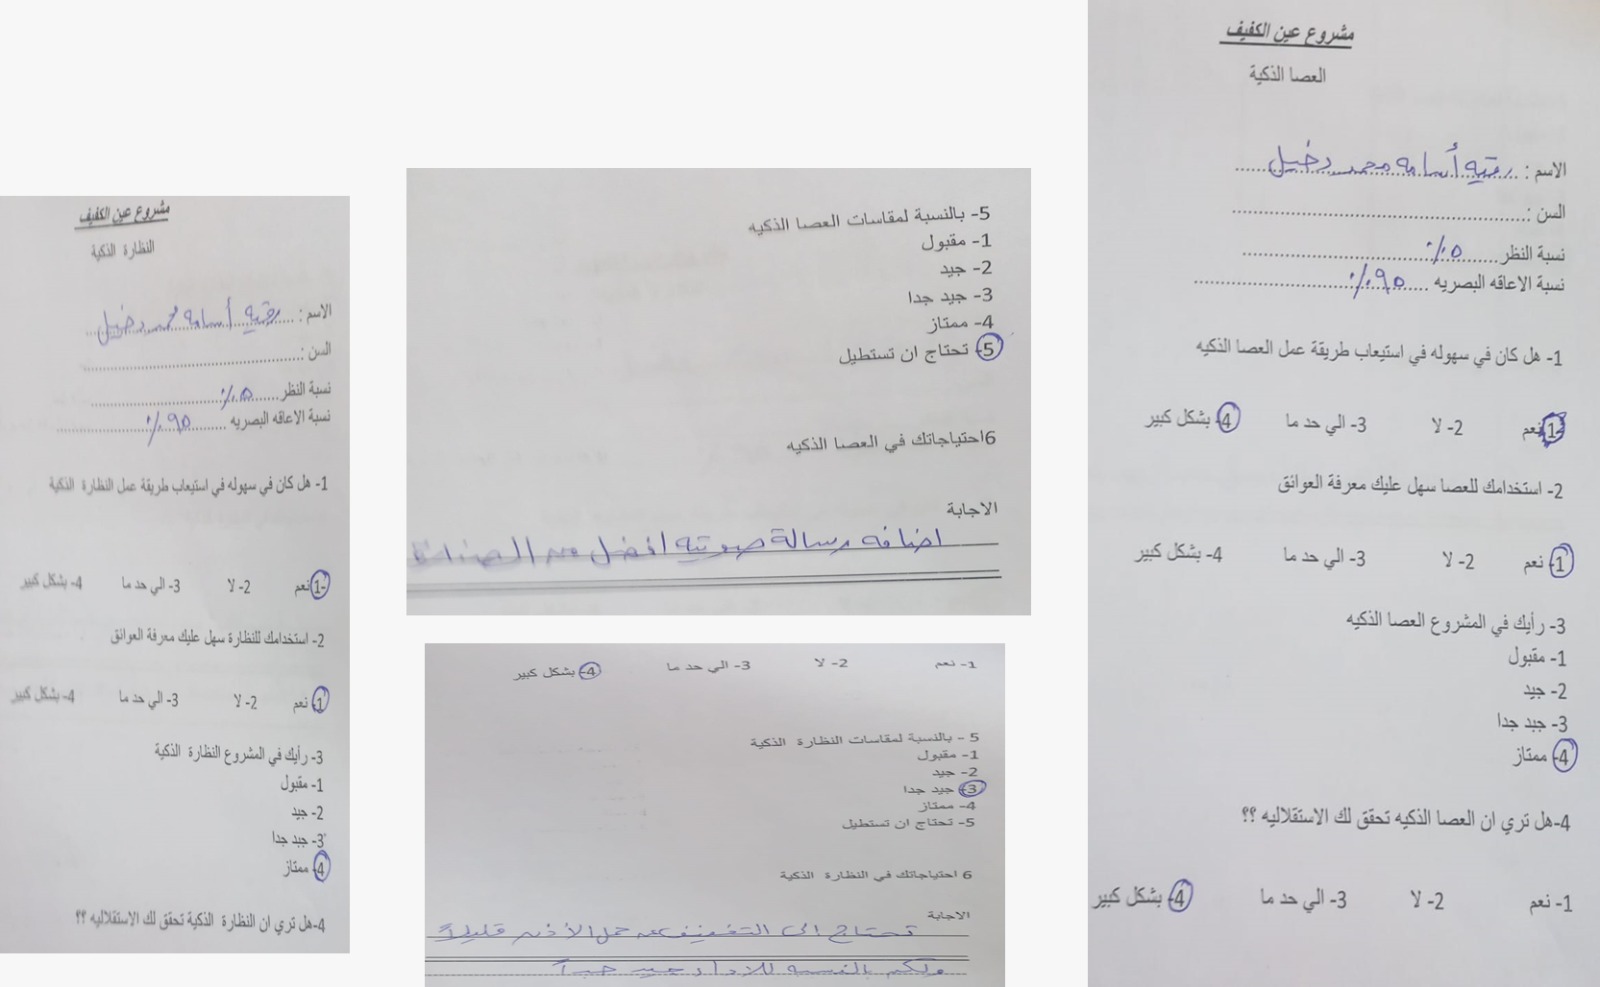 مشروع عين الكفيف
العصا الذكية
الاسم : رقيه أسامه محمد دخيل
السن :
نسبة النظر ٥٪
نسبة الاعاقه البصريه ٩٥٪
1- هل كان في سهوله في استيعاب طريقة عمل العصا الذكيه
1- نعم 2- لا 3- الي حد ما 4- بشكل كبير
2- استخدامك للعصا سهل عليك معرفة العوائق
1- نعم 2- لا 3- الي حد ما 4- بشكل كبير
3- رأيك في المشروع العصا الذكيه
1- مقبول
2- جيد
3- جبد جدا
4- ممتاز
4-هل تري ان العصا الذكيه تحقق لك الاستقلاليه ؟؟
1- نعم 2- لا 3- الي حد ما 4- بشكل كبير
5- بالنسبة لمقاسات العصا الذكيه
1- مقبول
2- جيد
3- جيد جدا
4- ممتاز
5- تحتاج ان تستطيل
6احتياجاتك في العصا الذكيه
الاجابة
اضافه رسالة صوتيه افضل من
مشروع عين الكفيف
النظارة الذكية
الاسم : رقيه أسامه محمد دخيل
السن :
نسبة النظر ٥٪
نسبة الاعاقه البصريه ٩٥٪
1- هل كان في سهوله في استيعاب طريقة عمل النظارة الذكية
1- نعم 2- لا 3- الي حد ما 4- بشكل كبير
2- استخدامك للنظارة سهل عليك معرفة العوائق
1- نعم 2- لا 3- الي حد ما 4- بشكل كبير
3- رأيك في المشروع النظارة الذكية
1- مقبول
2- جيد
3- جبد جدا
4- ممتاز
4-هل تري ان النظارة الذكية تحقق لك الاستقلاليه ؟؟
1- نعم 2- لا 3- الي حد ما 4- بشكل كبير
5 - بالنسبة لمقاسات النظارة الذكية
1- مقبول
2- جيد
3- جيد جدا
4- ممتاز
5- تحتاج ان تستطيل
6 احتياجاتك في النظارة الذكية
الاجابة
تحتاج الى التخفيف عن حمل الأذن قليلاً
ولكم بالنسبه للاداء جيد جداً